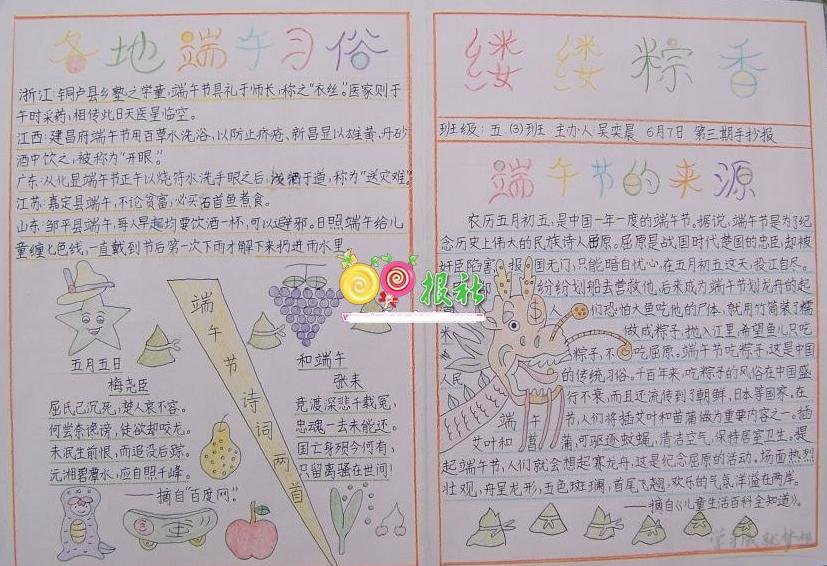 各地端午习俗
浙江：铜卢县乡塾之学童，端午节具礼于师长，称之“衣丝”。医家则于
午时采药，相传此日天医星临空。
江西：建昌府端午节用百草水洗浴，以防止疥疮、新昌县以雄黄、丹砂
酒中饮之，被称为“开眼”。
广东：从化县端午节正午以烧符水洗手眼之后，泼洒于道，称为“送灾难”。
江苏：嘉定县端午，不论贫富，必买石首鱼煮食。
山东：邹平县端午，每人早起均要饮酒一杯，可以避邪。日照端午给儿
童缠七色线，一直戴到节后第一次下雨才解下来扔进雨水里。
五月五日
梅尧臣
屈氏已沉死，楚人哀不容。
何尝奈谗谤，徒欲却蛟龙。
未泯生前恨，而追没后踪。
沅湘碧潭水，应自照千峰。
——摘自“百度网”。
端午节诗词两首
和端午
张耒
竞渡深悲千载冤，
忠魂一去讵能还。
国亡身殒今何有，
只留离骚在世间！
缕缕粽香
班级：五（3）班 主办人 吴奕晨 6月7日 第三期手抄报
端午节的来源
农历五月初五，是中国一年一度的端午节。据说，端午节是为了纪
念历史上伟大的民族诗人屈原。屈原是战国时代楚国的忠臣，却被
奸臣陷害，报国无门，只能暗自忧心，在五月初五这天，投江自尽。
纷纷划船去营救他，后来成为端午节划龙舟的起
人们恐怕大鱼吃他的尸体，就用竹筒装了糯
米 做成粽子，抛入江里，希望鱼儿只吃
粽子，不吃屈原。端午节吃粽子，这是中国
人民 的传统习俗。千百年来，吃粽子的风俗在中国盛
行不衰，而且还流传到了朝鲜，日本等国家，在
端午节，人们将插艾叶和菖蒲做为重要内容之一。插
艾叶和菖蒲，可驱逐蚊蝇，清洁空气，保持居室卫生，提
起端午节，人们就会想起赛龙舟，这是纪念屈原的活动，场面热烈
壮观，舟呈龙形，五色斑斓，首尾飞翘，欢乐的气氛洋溢在两岸。
——摘自《儿童生活百科全知道》。
报社
学习成就梦想